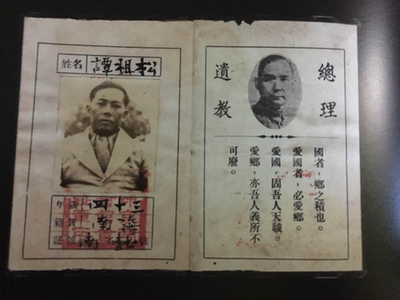 姓名 譚祖松
三十四
總理
遺教
國者，鄉之積也。
愛國者，必愛鄉。
愛國，固吾人天職。
愛鄉，亦吾人義所不
可廢。